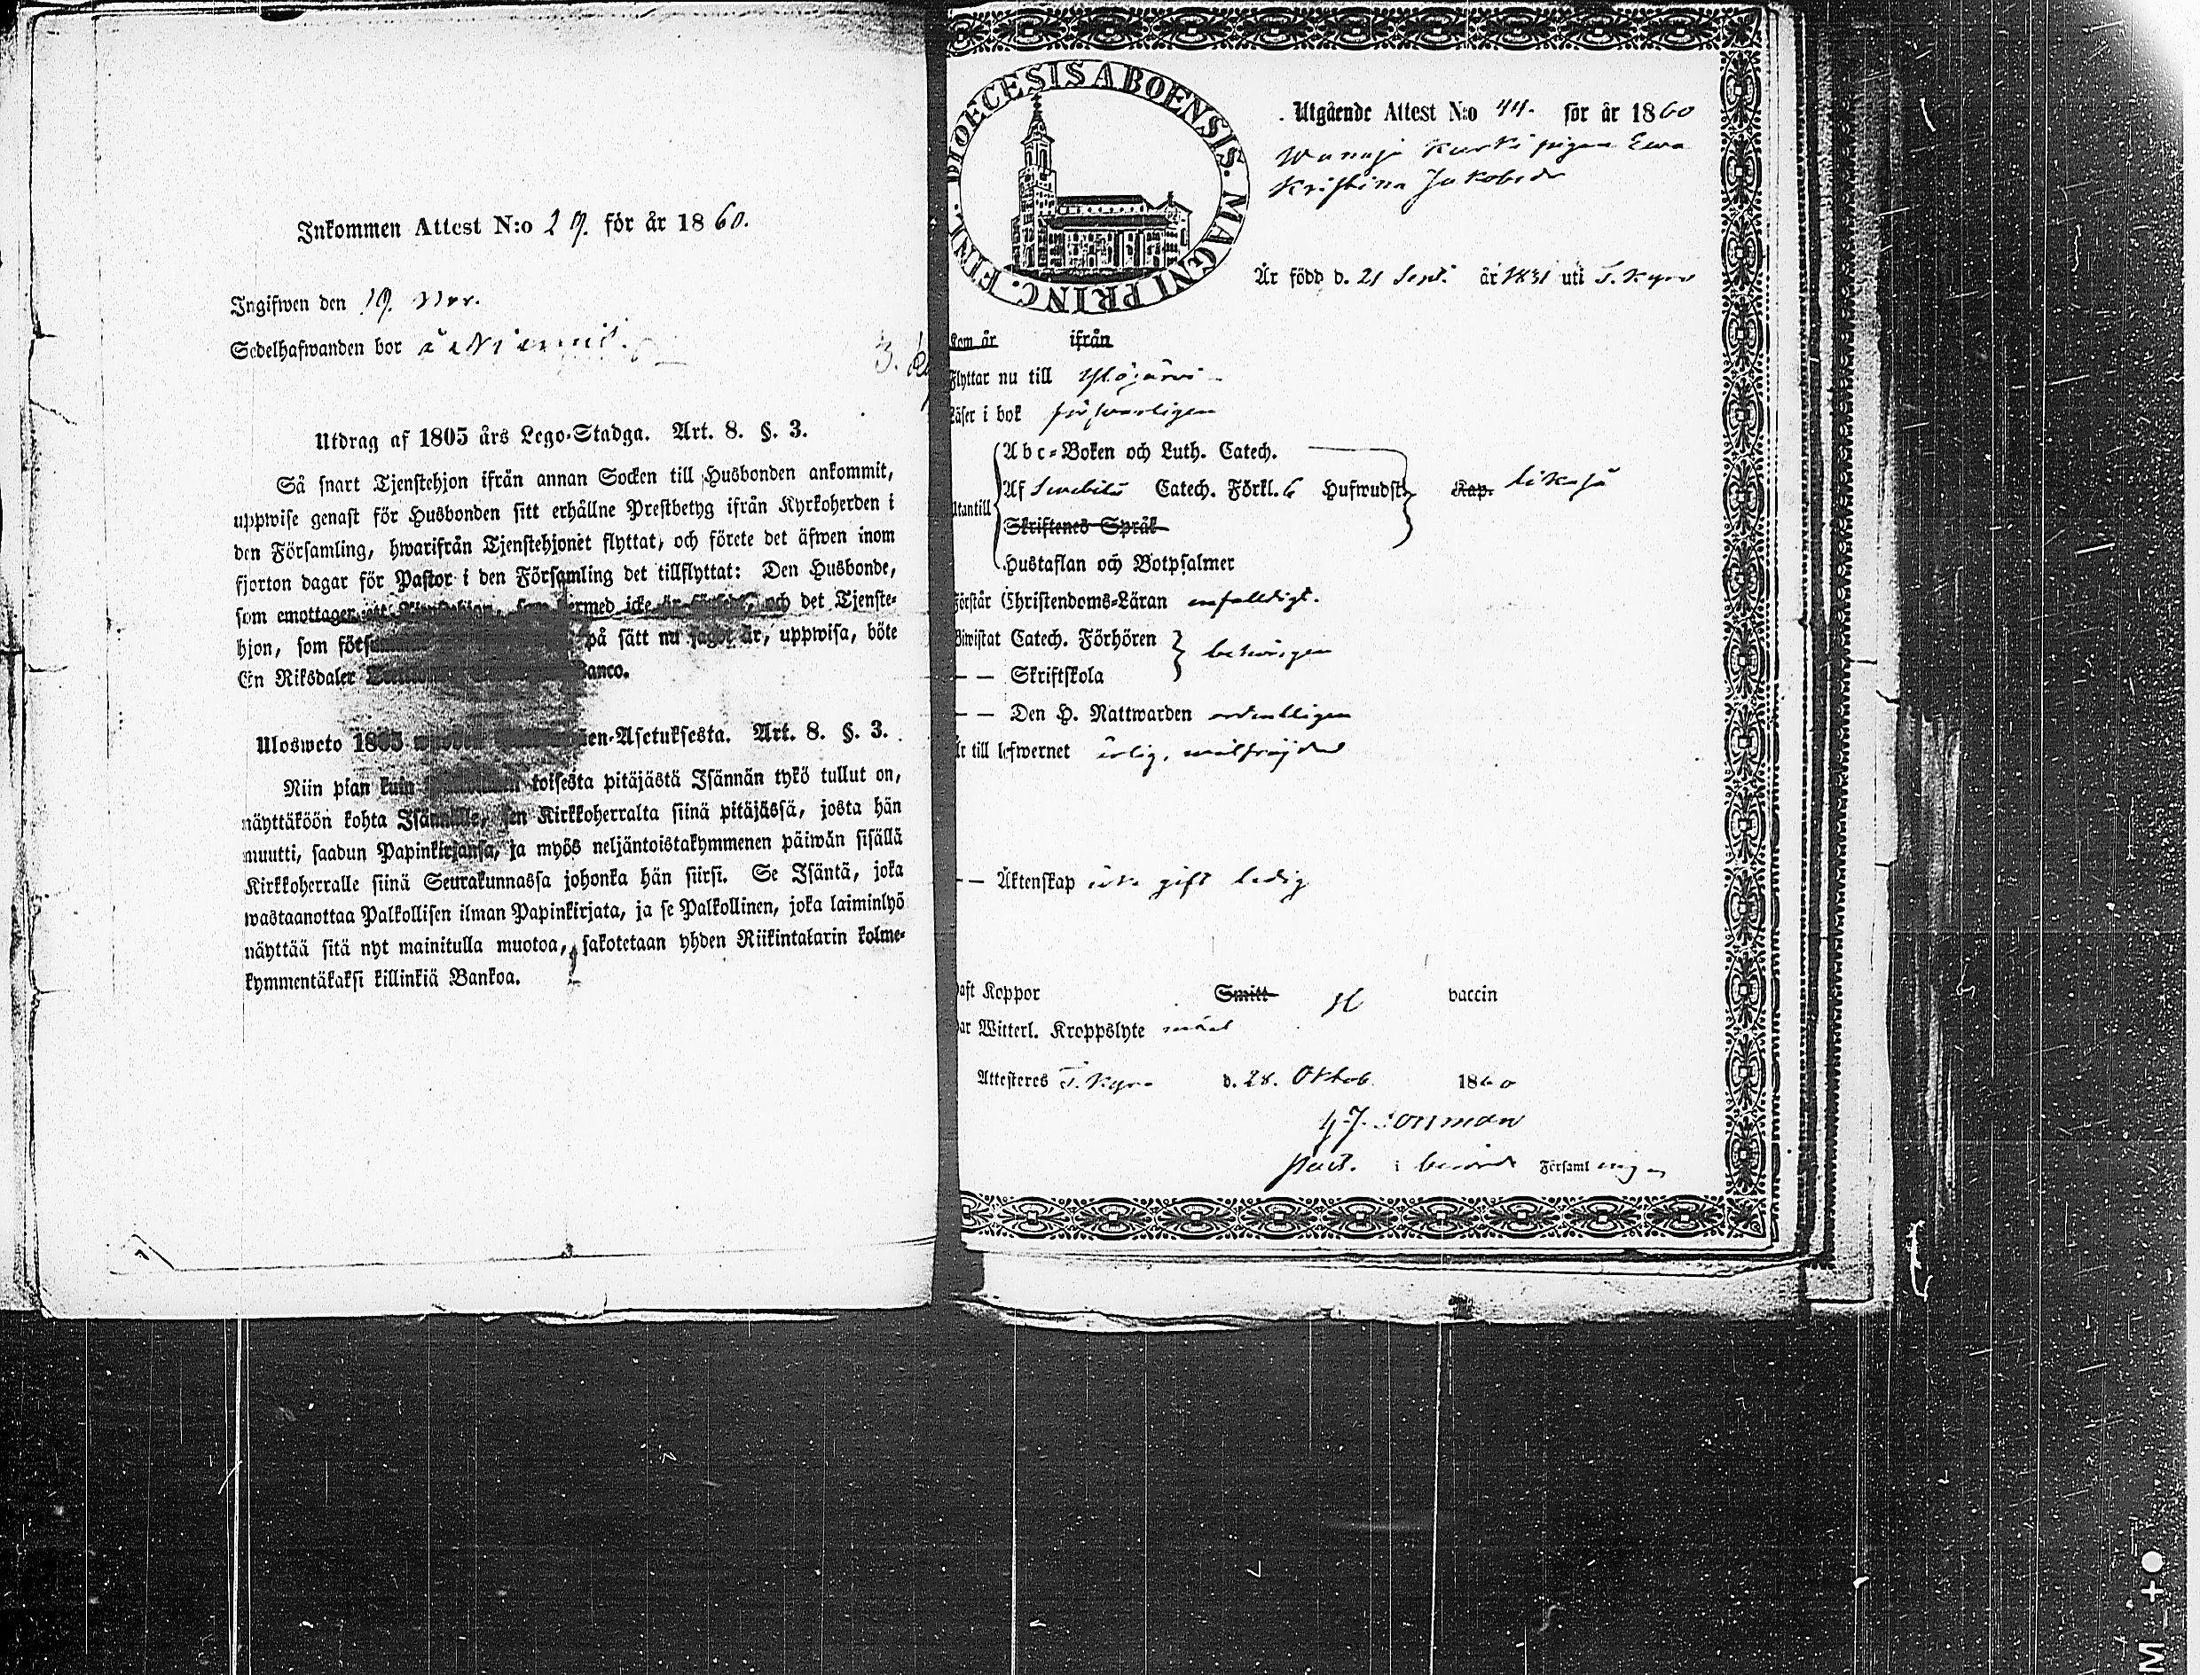 Inkommen Attest N:o 29. för år 1860.
Ingifwen den 19. Nov.
Sedelhafwanden bor
Utdrag af 1805 års Lego-Stadga. Art. 8. §. 3.
Så snart Tjenstehjon ifrån annan Socken till Husbonden ankommit,
uppwise genast för Husbonden sitt erhållne Prestbetyg ifrån Kyrkoherden i
den Församling, hwarifrån Tjenstehjonet flyttat, och förete det äfwen inom
fjorton dagar för Pastor i den Församling det tillflyttat: Den Husbonde,
som emottager ett icke är och det Tjenste-
hjon, som på sätt nu sagdt är, uppwisa, böte
En Riksdaler Banco.
Ulosweto 1805 Art. 8. §. 3.
Niin pian kuin toisesta pitäjästä Isännän tykö tullut on,
näyttäköön kohta Isännälle, sen Kirkkoherralta siinä pitäjässä, josta hän
muutti, saadun Papinkirjansa, ja myös neljäntoistakymmenen päiwän sisällä
Kirkkoherralle siinä Seurakunnassa johonka hän siirsi. Se Isäntä, joka
wastaanottaa Palkollisen ilman Papinkirjata, ja se Palkollinen, joka laiminlyö
näyttää sitä nyt mainitulla muotoa, sakotetaan yhden Riikintalarin kolme-
kymmentäkaksi killinkiä Bankoa.
DIOECESIS ABOENSIS. MAGNI PRINC. FINL.
Utgående Attest N:o 44. för år 1860
pigan Ewa
Kristina Jakobsdr
Är född d. 21 Sept. år 1831 uti T. Kyro
kom år ifrån
Flyttar nu till Ylöjärvi
Läser i bok försvarligen
Abc-Boken och Luth. Catech.
Utantill Af Swebilii Catech. Förkl. 6 Hufwudst. Kap. likaså
Skriftenes Språk
Hustaflan och Botpsalmer
Förstår Christendoms-Läran enfaldigt.
Biwistat Catech. Förhören behörigen
— — Skriftskola
— — Den H. Nattwarden ordentligen
Är till lefwernet ärlig, wälfrejdad
— — Äktenskap icke gift ledig
Haft Koppor Smitt vaccin
Har Witterl. Kroppslyte
Attesteres T. Kyro d. 28. Oktob. 1860
Past. i berörde Församlingen